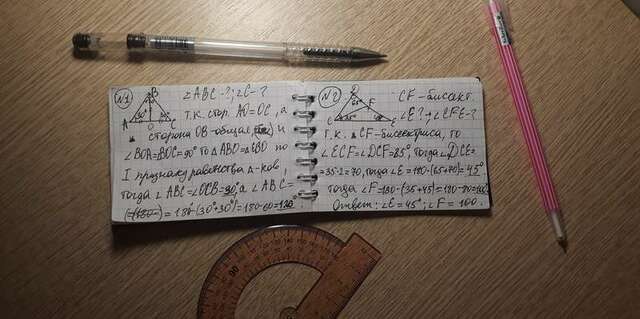 №1
∠ABC-?; ∠C-?
т.к. стор. AO=OC, а
сторона OB-общая и
∠BOA=∠BOC=90° то △ABO=△CBO по
I признаку равенства △-ков,
тогда ∠ABC=
=180-(30°+30°)=180-60=120°
№2
CF-биссект.
∠E-? ∠CFE-?
т.к. CF-биссектриса, то
∠ECF=∠DCF=35°, тогда ∠DCE=
=35·2=70, тогда ∠E=180-(65+70)=45°
тогда ∠F=180-(35+45)=180-80=100
Ответ: ∠E=45°; ∠F=100.
90